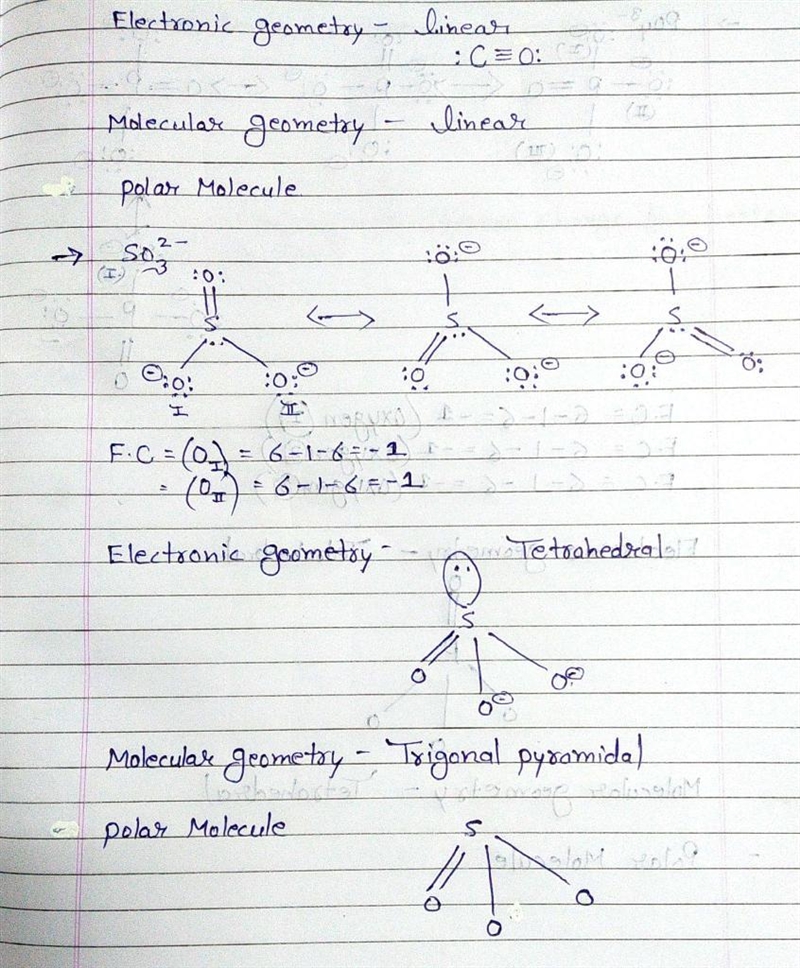 Electronic geometry - linear
:C≡O:
Molecular geometry - linear
polar Molecule
→ SO₃²⁻
(I.) :O: :Ö:⊖ :Ö:⊖
S ↔ S ↔ S
⊖:O: :O:⊖ :O :O:⊖ :O:⊖ O:
I II
F.C = (O_I) = 6-1-6=-1
= (O_II) = 6-1-6=-1
Electronic geometry - Tetrahedral
S
O O⊖ O⊖
Molecular geometry - Trigonal pyramidal
polar Molecule S
O O O